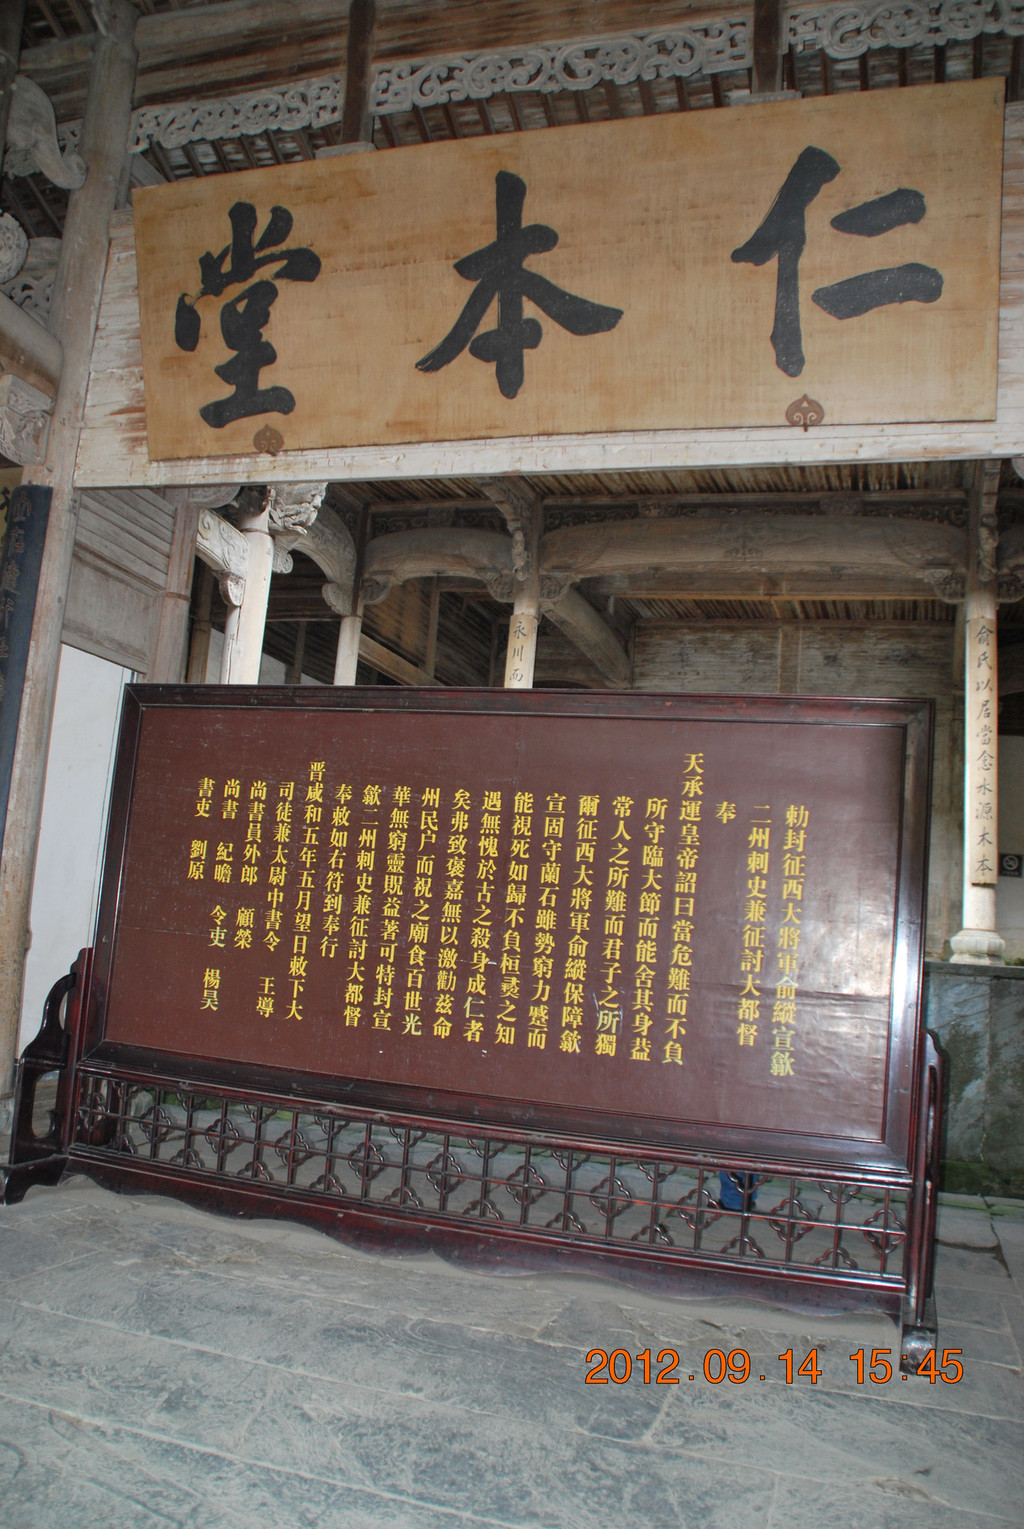 仁本堂
勅封征西大將軍俞縱宣歙
二州刺史兼征討大都督
奉
天承運皇帝詔曰當危難而不負
所守臨大節而能舍其身益
常人之所難而君子之所獨
爾征西大將軍俞縱保障歙
宣固守蘭石雖勢窮力蹙而
能視死如歸不負桓彞之知
遇無愧於古之殺身成仁者
矣弗致褒嘉無以激勸茲命
州民户而祝之廟食百世光
華無窮靈貺益著可特封宣
歙二州刺史兼征討大都督
奉敕如右符到奉行
晋咸和五年五月望日敕下大
司徒兼太尉中書令 王導
尚書員外郎 顧榮
尚書 紀瞻 令吏 楊昊
書吏 劉原
永川而
俞氏以居當念水源木本
2012.09.14 15:45